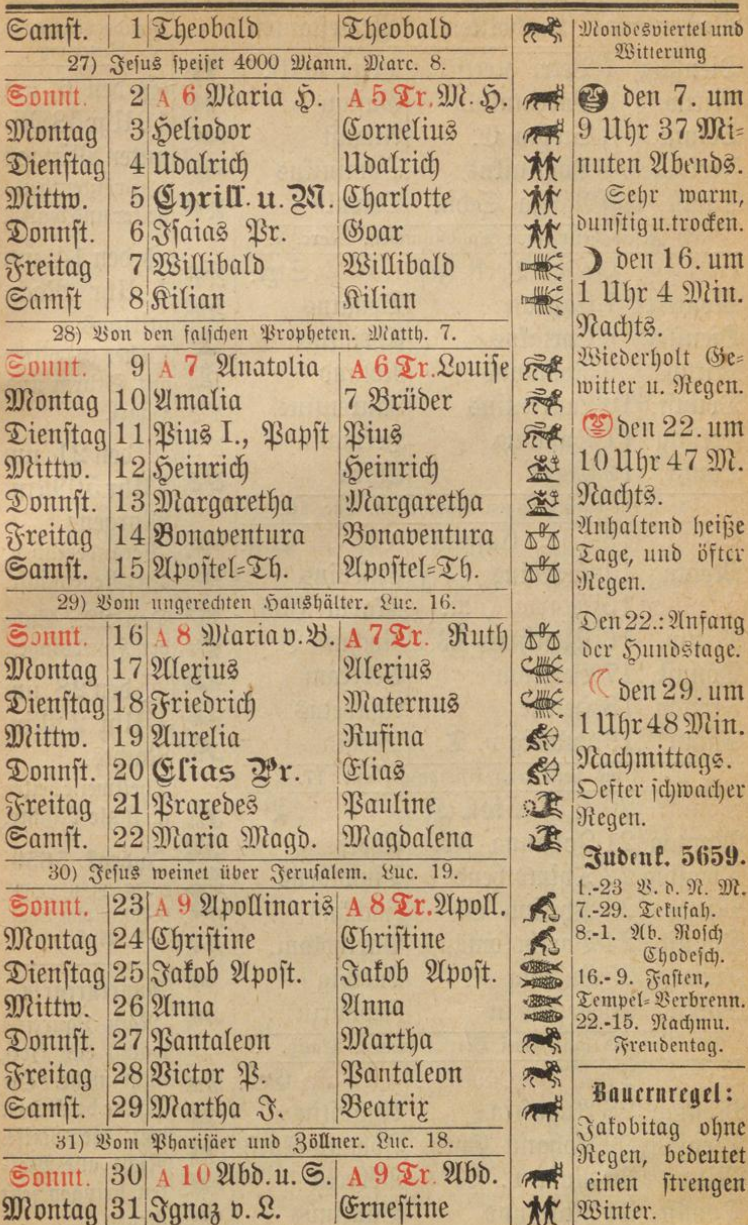 Samst. 1 Theobald Theobald
27) Jesus speiset 4000 Mann. Marc. 8.
Sonnt. 2 A 6 Maria H. A 5 Tr. M. H.
Montag 3 Heliodor Cornelius
Dienstag 4 Udalrich Udalrich
Mittw. 5 Cyrill. u. M. Charlotte
Donnst. 6 Isaias Pr. Goar
Freitag 7 Willibald Willibald
Samst 8 Kilian Kilian
28) Von den falschen Propheten. Matth. 7.
Sonnt. 9 A 7 Anatolia A 6 Tr. Louise
Montag 10 Amalia 7 Brüder
Dienstag 11 Pius I., Papst Pius
Mittw. 12 Heinrich Heinrich
Donnst. 13 Margaretha Margaretha
Freitag 14 Bonaventura Bonaventura
Samst. 15 Apostel=Th. Apostel=Th.
29) Vom ungerechten Haushälter. Luc. 16.
Sonnt. 16 A 8 Maria v. B. A 7 Tr. Ruth
Montag 17 Alexius Alexius
Dienstag 18 Friedrich Maternus
Mittw. 19 Aurelia Rufina
Donnst. 20 Elias Pr. Elias
Freitag 21 Praxedes Pauline
Samst. 22 Maria Magd. Magdalena
30) Jesus weinet über Jerusalem. Luc. 19.
Sonnt. 23 A 9 Apollinaris A 8 Tr. Apoll.
Montag 24 Christine Christine
Dienstag 25 Jakob Apost. Jakob Apost.
Mittw. 26 Anna Anna
Donnst. 27 Pantaleon Martha
Freitag 28 Victor P. Pantaleon
Samst. 29 Martha J. Beatrix
31) Vom Pharisäer und Zöllner. Luc. 18.
Sonnt. 30 A 10 Abd. u. S. A 9 Tr. Abd.
Montag 31 Ignaz v. L. Ernestine
Mondesviertel und
Witterung
den 7. um
9 Uhr 37 Mi=
nuten Abends.
Sehr warm,
dunstig u. trocken.
☽ den 16. um
1 Uhr 4 Min.
Nachts.
Wiederholt Ge=
witter u. Regen.
den 22. um
10 Uhr 47 M.
Nachts.
Anhaltend heiße
Tage, und öfter
Regen.
Den 22.: Anfang
der Hundstage.
☾ den 29. um
1 Uhr 48 Min.
Nachmittags.
Oefter schwacher
Regen.
Judenk. 5659.
1.-23 B. d. N. M.
7.-29. Tekufah.
8.-1. Ab. Rosch
Chodesch.
16.- 9. Fasten,
Tempel= Verbrenn.
22.-15. Nachmu.
Freudentag.
Bauernregel:
Jakobitag ohne
Regen, bedeutet
einen strengen
Winter.